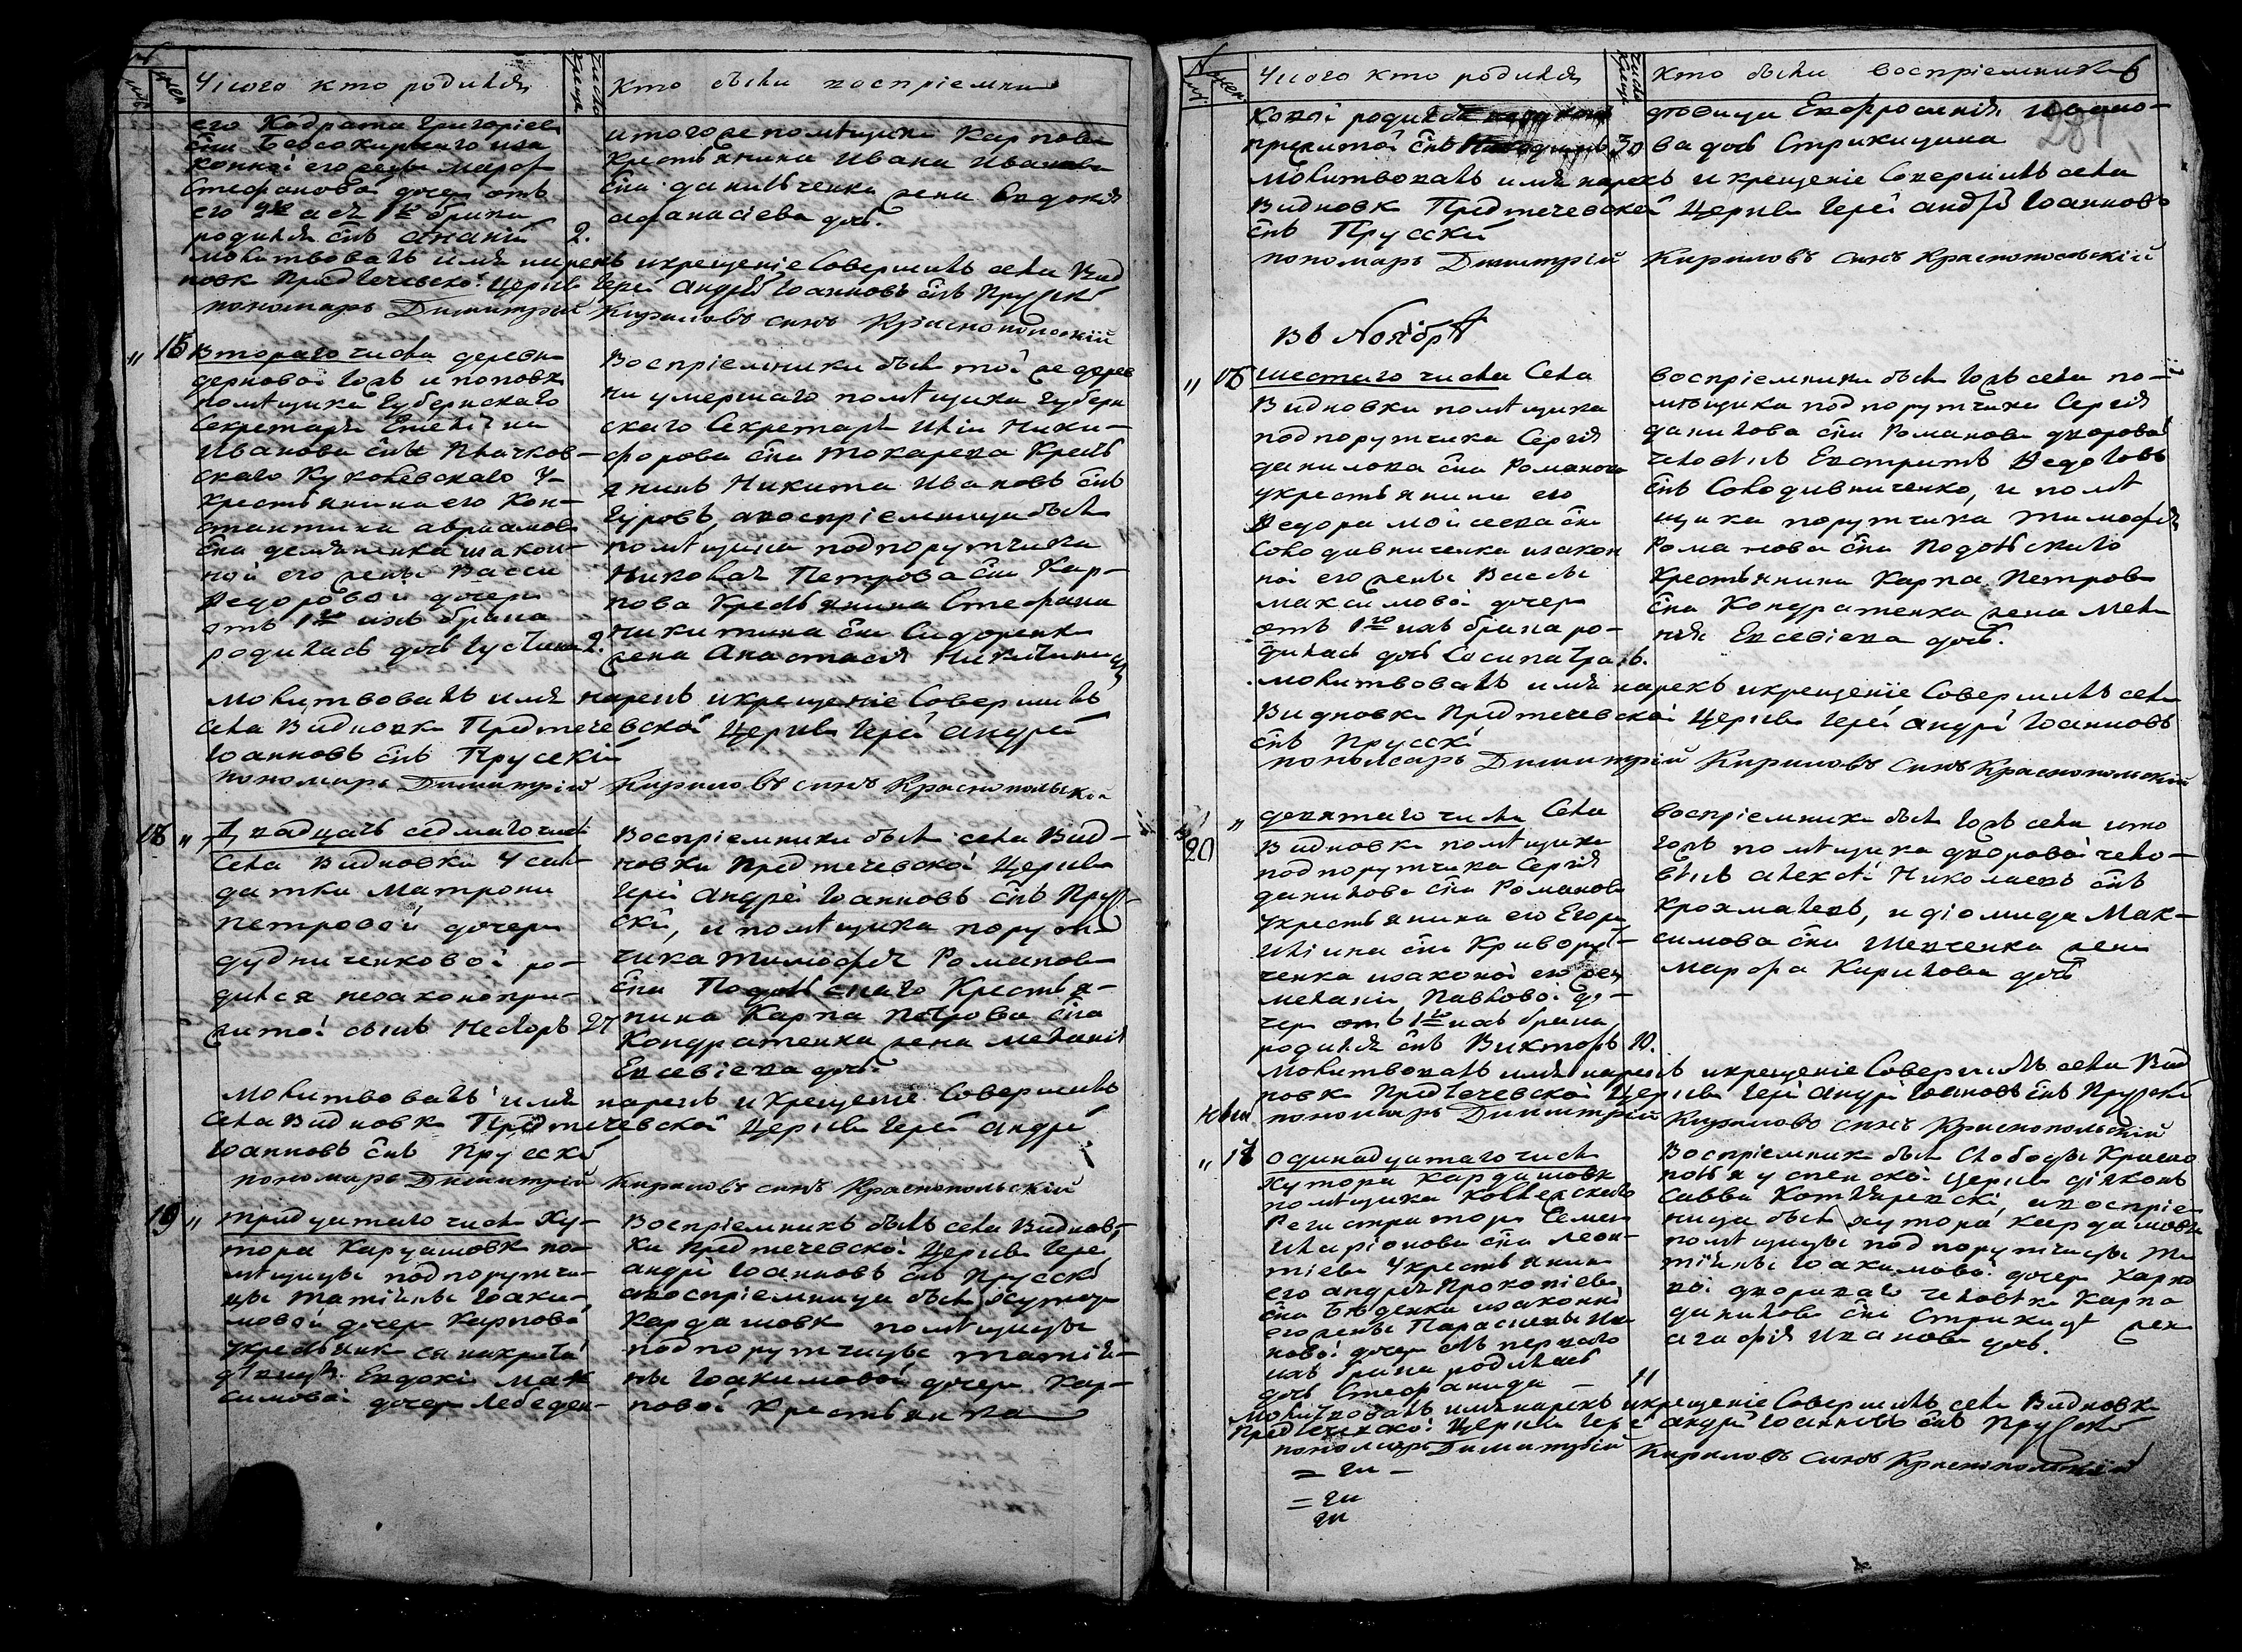 Чісого кто родился
Число крещ
Кто были восприемники
его Кодрата Григоріев
сна Безсокирнаго иза
конной его жены Марф
Стефановой дочер отъ
его 2го а ея 1го брака
родился снъ Ананій 2.
итогоже помѣщика Карпова
крестьянина Ивана Иванова
сна Данильченка жена Евдокія
Афанасіева дочь.
молитвовалъ имя нарекъ икрещеніе Совершилъ села Вид
новк Предтечевской Церкви Іерей Андрей Іоанновъ снъ Прускій
пономарь Димитрій Кириловъ синъ Краснопольскій
" 15 Втораго числа деревн
дерновой тожъ и поповк
помѣщика Губернскаго
Секретаря
Иванова снъ Плачков-
скаго Куколевскаго У
крестьянина его Кон-
стантина Авраамова
сна Демяненка изакон-
ной его жены Васси
Ѳедоровой дочери
отъ 1го ихъ брака
родилась дочь Іустина 2.
Восприемники были той же дерев
ни умершаго помѣщика Губерн
скаго Секретаря Иліи Ники-
форова сна Токарева Кресть
янинъ Никита Ивановъ снъ
Гуровъ, авосприемница была
помѣщика подпорутчика
Николая Петрова сна Кар-
пова Крестьянина Стефана
Никитина сна Сидоренка
жена Анастасія Никитина дч
молитвовалъ имя нарекъ икрещеніе Совершилъ
села Видновки Предтечевской Церкви Іерей Андрей
Іоанновъ снъ Прускій
пономарь Димитрій Кириловъ синъ Краснопольскій
18 " Двадцать седмаго числа
Села Видновки У сол-
датки Матрони
Петровой дочери
Дудниченковой ро-
дился незаконопри-
житой сынъ Несторъ 27
Восприемники были села Вид-
новки Предтечевской Церкви
Іерей Андрей Іоанновъ снъ Прус-
скій, и помѣщика порут-
чика Тимофея Романова
сна Подольскаго Крестья-
нина Карпа Петрова сна
Кондратенка жена Меланія
Евсевіева дочь
Молитвовалъ имя нарекъ икрещеніе Совершилъ
села Видновк Предтечевской Церкви Іерей Андрей
Іоанновъ снъ Прускій
пономарь Димитрій Кириловъ синъ Краснопольскій
19 " тридцатаго числа Ху-
тора Кардашовк по-
мѣщицы подпорутчи-
цы Татіяны Іоаки-
мовой дочер Карповой
укрестьянк ея
дѣвицы Евдокіи Мак
симовой дочер Лебеден-
Восприемникъ былъ села Виднов-
ки Предтечевской Церкви Іерей
Андрей Іоанновъ снъ Прускій
авосприемница была хутора
Кардашовк помѣщицы
подпорутчицы Татія-
ны Іоакимовой дочери Кар-
повой крестьянка
Чісого кто родился
Число крещ
кто были восприемники
6
281
Ковой родился
прижитой снъ 30
дѣвица Евфросинія Ивано-
ва дочь Стрижицина
молитвовалъ имя нарекъ и крещеніе Совершилъ села
Видновк Предтечевской Церкви Іерей Андрей Іоанновъ
снъ Прускій
пономарь Димитрій Кириловъ синъ Краснопольскій
Въ Ноябрѣ
" шестаго числа Села
Видновки помѣщика
подпорутчика Сергія
Данилова сна Романова
укрестьянина его
Ѳедора Мойсеева сна
Солодивниченка изакон
ной его жены Вассы
Максимовой дочер
отъ 1го ихъ брака ро-
дилась дочь Сосипатра 6.
восприемники были тожъ села по-
мѣщика подпорутчика Сергія
Данилова сна Романова дворовой
человѣкъ Евстратъ Ѳедоровъ
снъ Солодивниченко, и помѣ
щика порутчика Тимофея
Романова сна Подольскаго
Крестьянина Карпа Петрова
сна Кондратенка жена Мела
нія Евсевіева дочь.
молитвовалъ имя нарекъ икрещеніе Совершилъ села
Видновк Предтечевской Церкви Іерей Андрей Іоанновъ
снъ Прускій
пономарь Димитрій Кириловъ синъ Краснопольскій
20 " девятаго числа Села
Видновк помѣщика
подпорутчика Сергія
Данилова сна Романова
Укрестьянина его Егора
Иліина сна Криворуч-
ченка изаконой его жен
Меланіи Павловой до-
чери отъ 1го ихъ брака
родился снъ Викторъ 10.
восприемники были тожъ села ито
гожъ помѣщика дворовой чело-
вѣкъ Алексѣй Николаевъ снъ
Крохмалевъ, и Діомида Мак-
симова сна Шевченка жена
Марфа Кирилова дочь
Молитвовалъ имя нарекъ икрещеніе Совершилъ села Вид
новк Предтечевской Церкви Іерей Андрей Іоанновъ снъ Прускій
пономарь Димитрій Кириловъ синъ Краснопольскій
" одинадцатаго числа
Хутора Кардашовк
помѣщика Коллежскаго
Регистратора Семена
Иларіонова сна Леон-
тіева Укрестьянина
его Андрея Прокопіева
сна Бѣденка изаконной
его жены Параскевы Ива
новой дочери отъ перваго
ихъ брака родилась
дочь Стефанида 11
Восприемник былъ Слободы Красно
полья Успенской Церкви діяконъ
Савва Котляревскій, авосприе-
ница была хутора Кардашовк
помѣщицы подпорутчицы Та
тіяны Іоакимовой дочер Карпо
вой двороваго человѣка Карпа
Данилова сна Стрижиц жен
Агафія Иванова дочь.
Молитвовалъ имя нарекъ икрещеніе Совершилъ села Видновк
Предтечевской Церкви Іерей Андрей Іоанновъ снъ Прускій
пономарь Димитрій Кириловъ синъ Краснопольскій